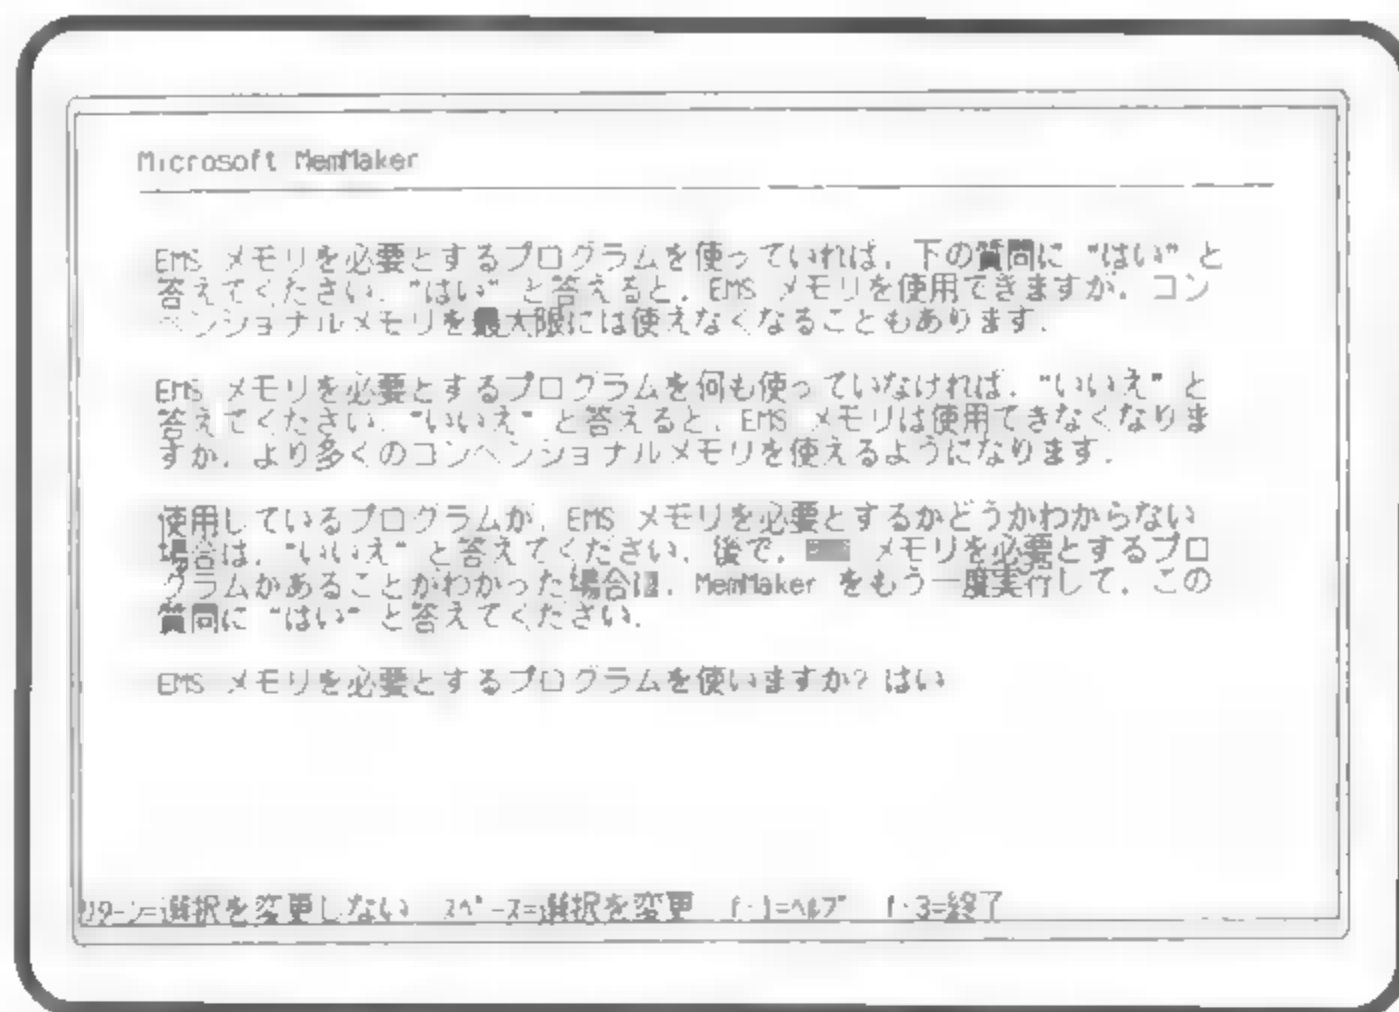 Microsoft MemMaker
EMS メモリを必要とするプログラムを使っていれば、下の質問に "はい" と
答えてください. "はい" と答えると、EMS メモリを使用できますが、コン
ベンショナルメモリを最大限には使えなくなることもあります.
EMS メモリを必要とするプログラムを何も使っていなければ、"いいえ" と
答えてください. "いいえ" と答えると、EMS メモリは使用できなくなりま
すが、より多くのコンベンショナルメモリを使えるようになります.
使用しているプログラムが、EMS メモリを必要とするかどうかわからない
場合は、"いいえ" と答えてください. 後で、 メモリを必要とするプロ
グラムがあることがわかった場合は、MemMaker をもう一度実行して、この
質問に "はい" と答えてください.
EMS メモリを必要とするプログラムを使いますか? はい
ﾘﾀｰﾝ=選択を変更しない ｽﾍﾟｰｽ=選択を変更 f･1=ﾍﾙﾌﾟ f･3=終了